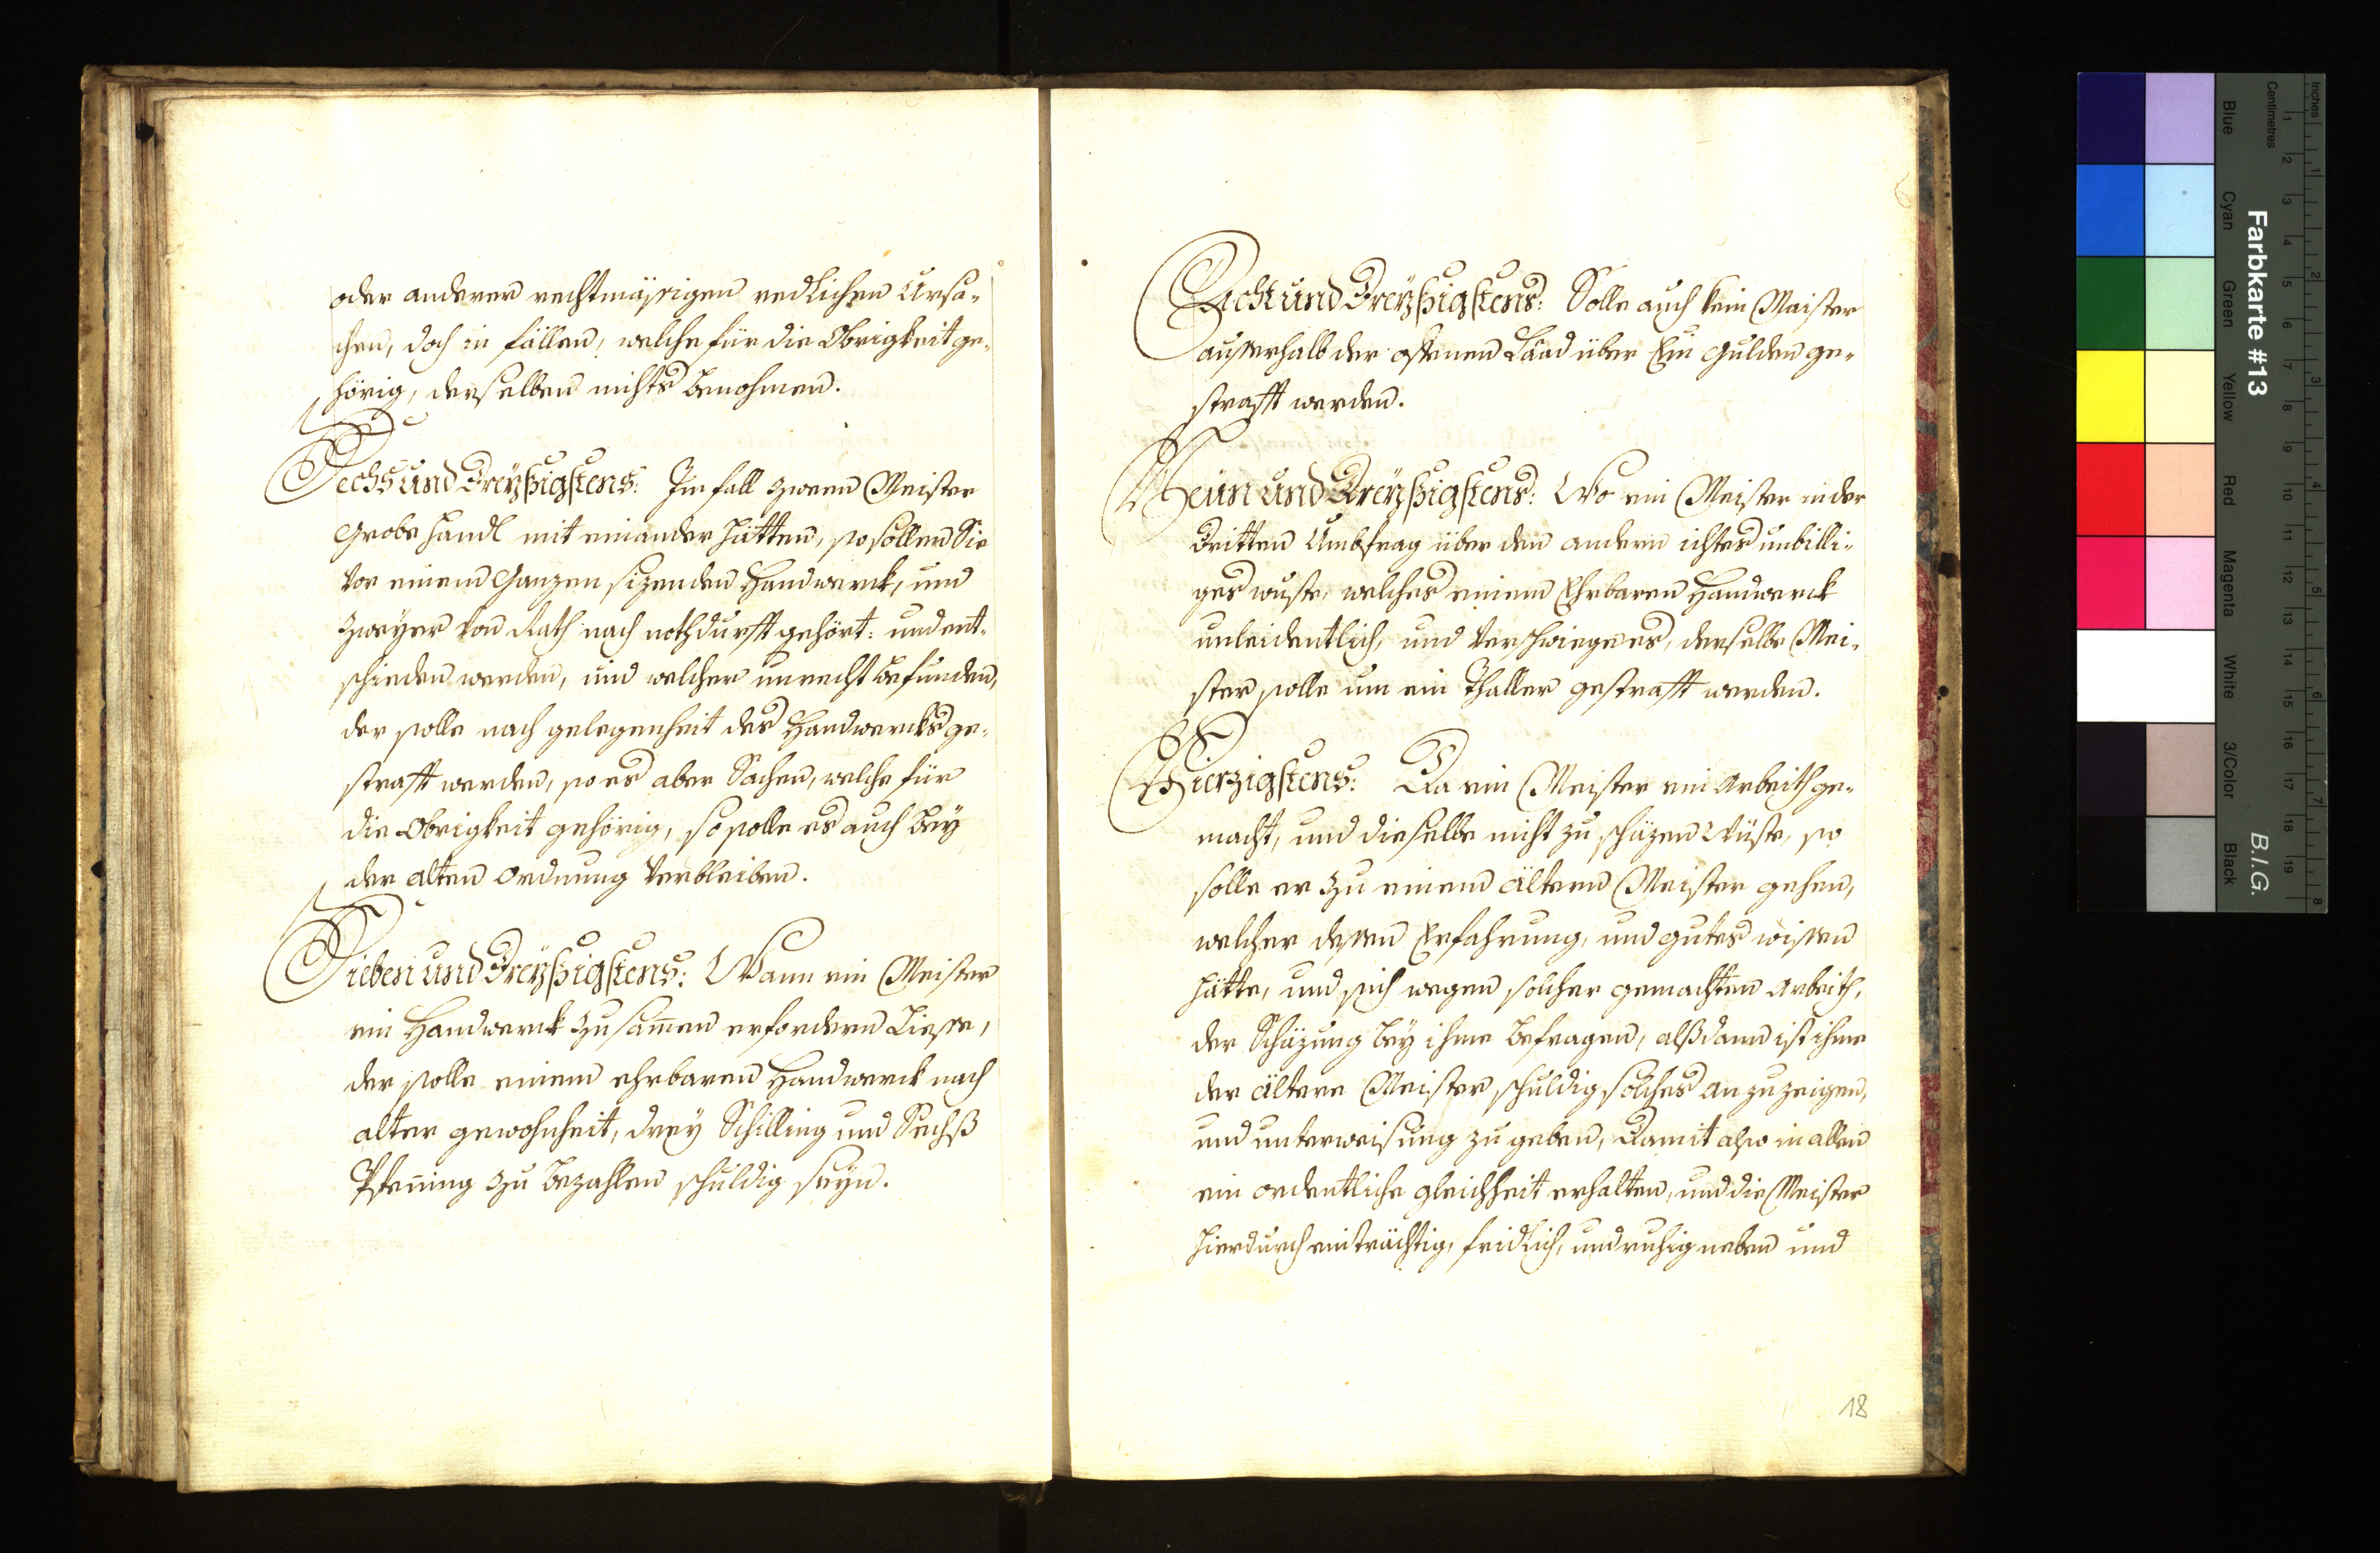 oder anderen rechtmässigen redlichen Ursa-
chen, doch in fällen, welche für die Obrigkeit ge-
hörig, derselben nichts benohmen.
Sechs und Dreyßigstens: Im fall zween Meister
Grobe händl mit einander hätten, so sollen Sie
vor einem Ganzen sizenden Handwerck, und
zweyer von Rath nach nothdurfft gehört: und ent-
schieden werden, und welcher unrecht befunden,
der solle nach gelegenheit des Handwercks ge-
strafft werden, so es aber Sachen, welche für
die Obrigkeit gehörig, so solle es auch bey
der alten ordnung verbleiben.
Sieben und Dreyßigstens: Wann ein Meister
ein Handwerck zusamen erfordern liesse,
der solle einem ehrbaren Handwerck nach
alter gewohnheit, drey Schilling und Sechß
Pfening zu bezahlen schuldig seyn.
Acht und Dreyßigstens: Solle auch kein Maister
ausserhalb der offenen Laad über Ein Gulden ge-
strafft werden.
Neün und Dreyßigstens: Wo ein Meister in der
dritten Umbfrag über den andern ichtes unbilli-
ges wuste, welches einem Ehrbaren Handwerck
unleidentlich, und verschwiege es, derselbe Mei-
ster solle um ein Thaller gestrafft werden.
Vierzigstens: Da ein Meister ein Arbeith ge-
macht, und dieselbe nicht zu schäzen Wüste, so
solle er zu einem ältern Meister gehen,
welcher dessen Erfahrung, und gutes wissen
hätte, und sich wegen solcher gemachten Arbeith,
der Schäzung bey ihme befragen, alßdann ist ihme
der ältere Meister schuldig solches anzuzeigen,
und unterweisung zu geben, Damit also in allen
ein ordentliche gleichheit erhalten, und die Meister
hierdurch einträchtig, fridlich, und ruhig neben und
18
Inches
Centimetres
1 2 3 4 5 6 7 8
1 2 3 4 5 6 7 8 9 10 11 12 13 14 15 16 17 18 19
Farbkarte #13
B.I.G.
Blue
Cyan
Green
Yellow
Red
Magenta
White
3/Color
Black